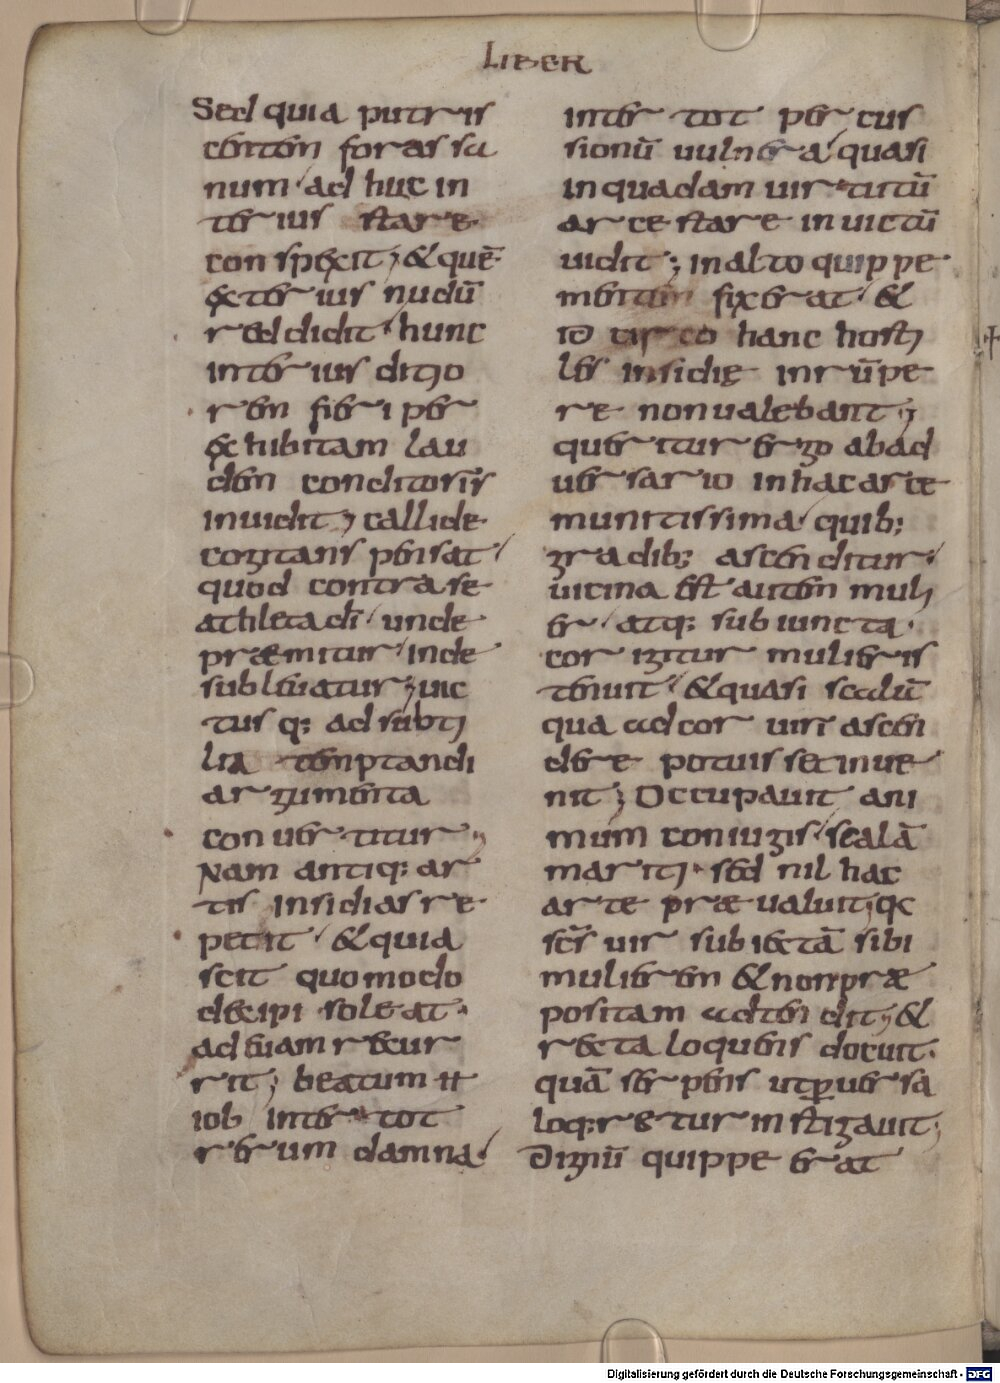 LIBER
Sed quia putris
certen foras sa
num / ad huc in
terius stare
conspexit; & quē
exterius nudū
reddidit / hunc
interius ditio
ren fieri per
exhibitam lau
dem conditoris
inuidit; callide
cogitans pensat /
quod contra se
athleta di / unde
præmitur / inde
subleuatur; uic
tusq; ad subti
lia temptandi
argumenta
conuertitur;
Nam antiq; ar
tis insidias re
petit / & quia
scit quomodo
decipi soleat.
ad euam recur
rit; beatum &
iob inter tot
rerum damna /
inter tot percus
sionū uulnera / quasi
in quadam uirtutū
arce stare inuictū
uidit; in alto quippe
mentem fixerat / &
idcirco hanc hosti
les insidię inrūpe
re non ualebant;
queritur ergo ab ad
uersario in hac arce
munitissima / quib;
gradib; ascenditur /
uicina est autem muli
er / atq; subiuncta.
cor igitur mulieris
tenuit / & quasi scalā
qua ad cor uiri ascen
dere potuisset inue
nit; Occupauit ani
mum coniugis / scalā
mariti. sed nil hac
arte præualuit; qa
scs uir subiectā sibi
mulierem & non præ
positam adtendit; &
recta loquens docuit.
quā serpens ut puersa
loqretur instigauit;
Dignū quippe erat
Digitalisierung gefördert durch die Deutsche Forschungsgemeinschaft - DFG